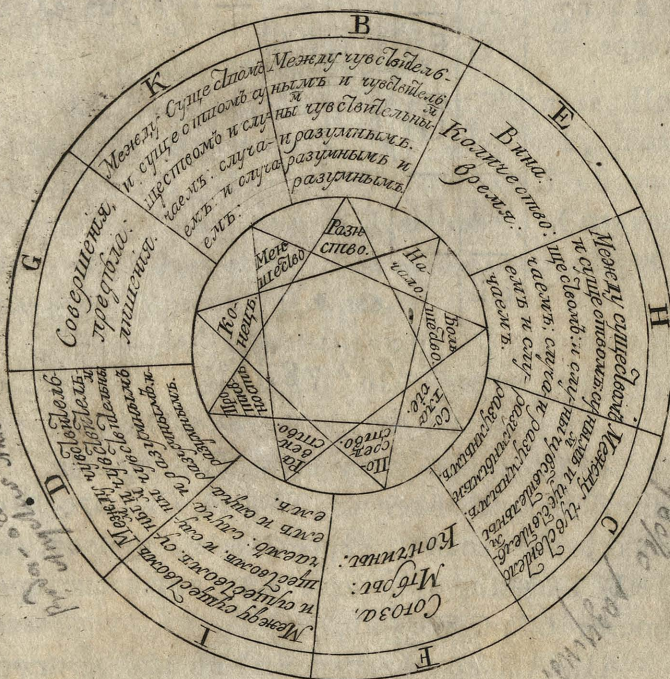 B
Между чувствитель-
нымъ и чувствитель
м
ны чувствительны
м
и разумнымъ.
разумнымъ и
разумнымъ.
E
Вина.
Количество:
время.
H
Между существомъ
и существомъ: су
ществомъ: и слу
чаемъ: случа
емъ и слу-
чаемъ.
C
Между чувствитель
нымъ и чувствитель
м
ны чувствительны
м
и разумнымъ.
разумнымъ и
разумнымъ
F
Союза,
Мѣры:
Кончины:
I
Между существомъ
и существомъ: су
ществомъ и слу
чаемъ: случа
емъ и случа
емъ.
D
Между чувствитель
и разумнымъ
разумнымъ и
разумнымъ.
G
Совершенія,
предѣла:
лишенія.
K
Между Существомъ
и существомъ су
ществомъ и слу-
чаемъ: случа-
емъ: и случа
емъ:
Разн
ство.
На
чало.
Боль
шество.
Со
гла
сіе.
По
сред
ство:
Ра
вен
ство.
Про
тив
ность
Ко
нецъ.
Мен
шество